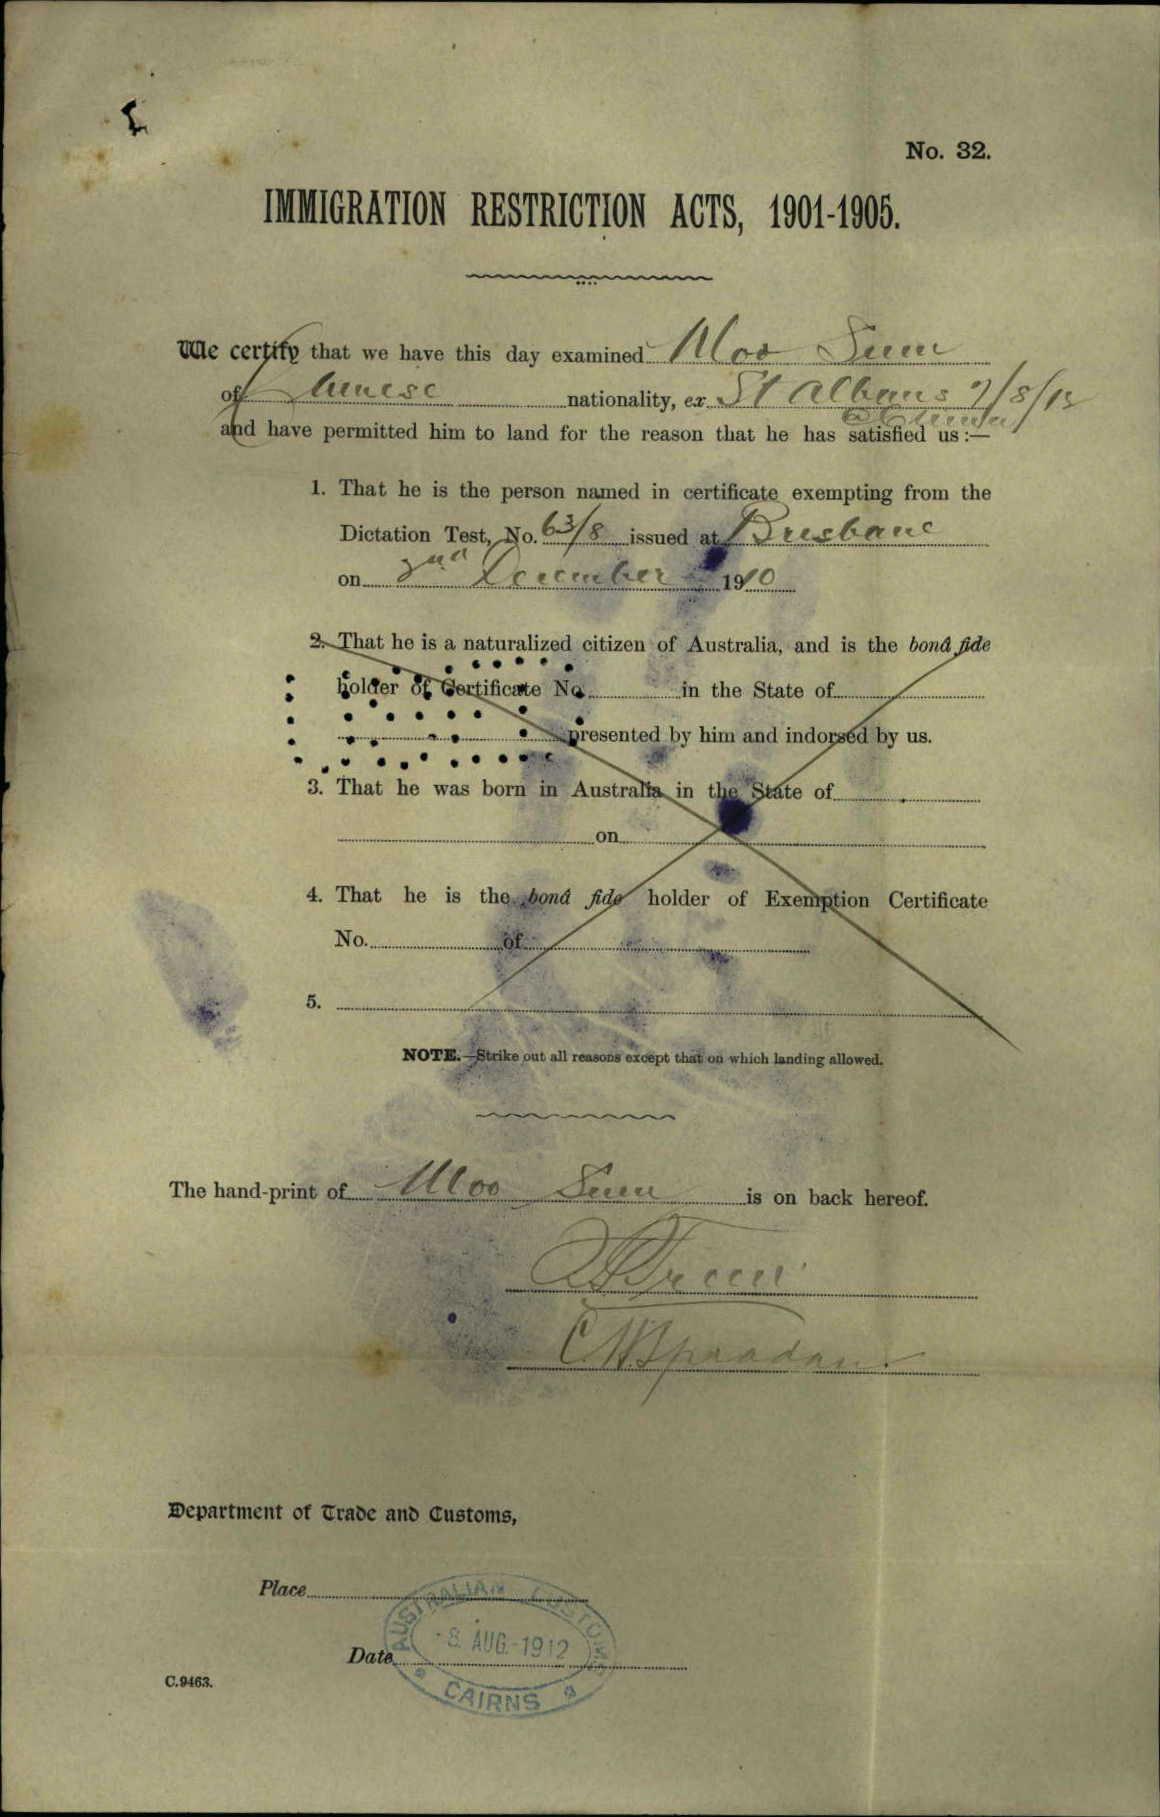 No. 32.
IMMIGRATION RESTRICTION ACTS, 1901-1905.
We certify that we have this day examined Moo Sum
of Chinese nationality, ex St Albans 7/8/12
and have permitted him to land for the reason that he has satisfied us:—
1. That he is the person named in certificate exempting from the
Dictation Test, No. 63/8 issued at Brisbane
on 2nd December 1910
2. That he is a naturalized citizen of Australia, and is the bonâ fide
holder of Certificate No. in the State of
presented by him and indorsed by us.
3. That he was born in Australia in the State of
on
4. That he is the bonâ fide holder of Exemption Certificate
No. of
5.
NOTE.—Strike out all reasons except that on which landing allowed.
The hand-print of Moo Sum is on back hereof.
Department of Trade and Customs,
Place
AUSTRALIAN CUSTOMS
-8. AUG.-1912
Date
CAIRNS
C.9463.